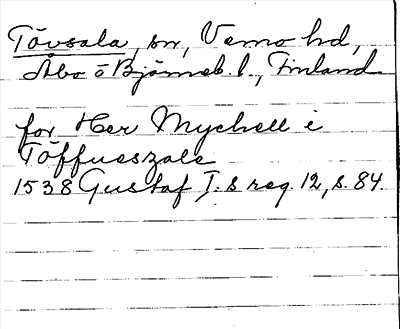 Tövsala, sn, Vemo hd,
Åbo o Björneb. l., Finland
for Her Mychell i
Töffueszale
1538 Gustaf I:s reg. 12, s. 84.